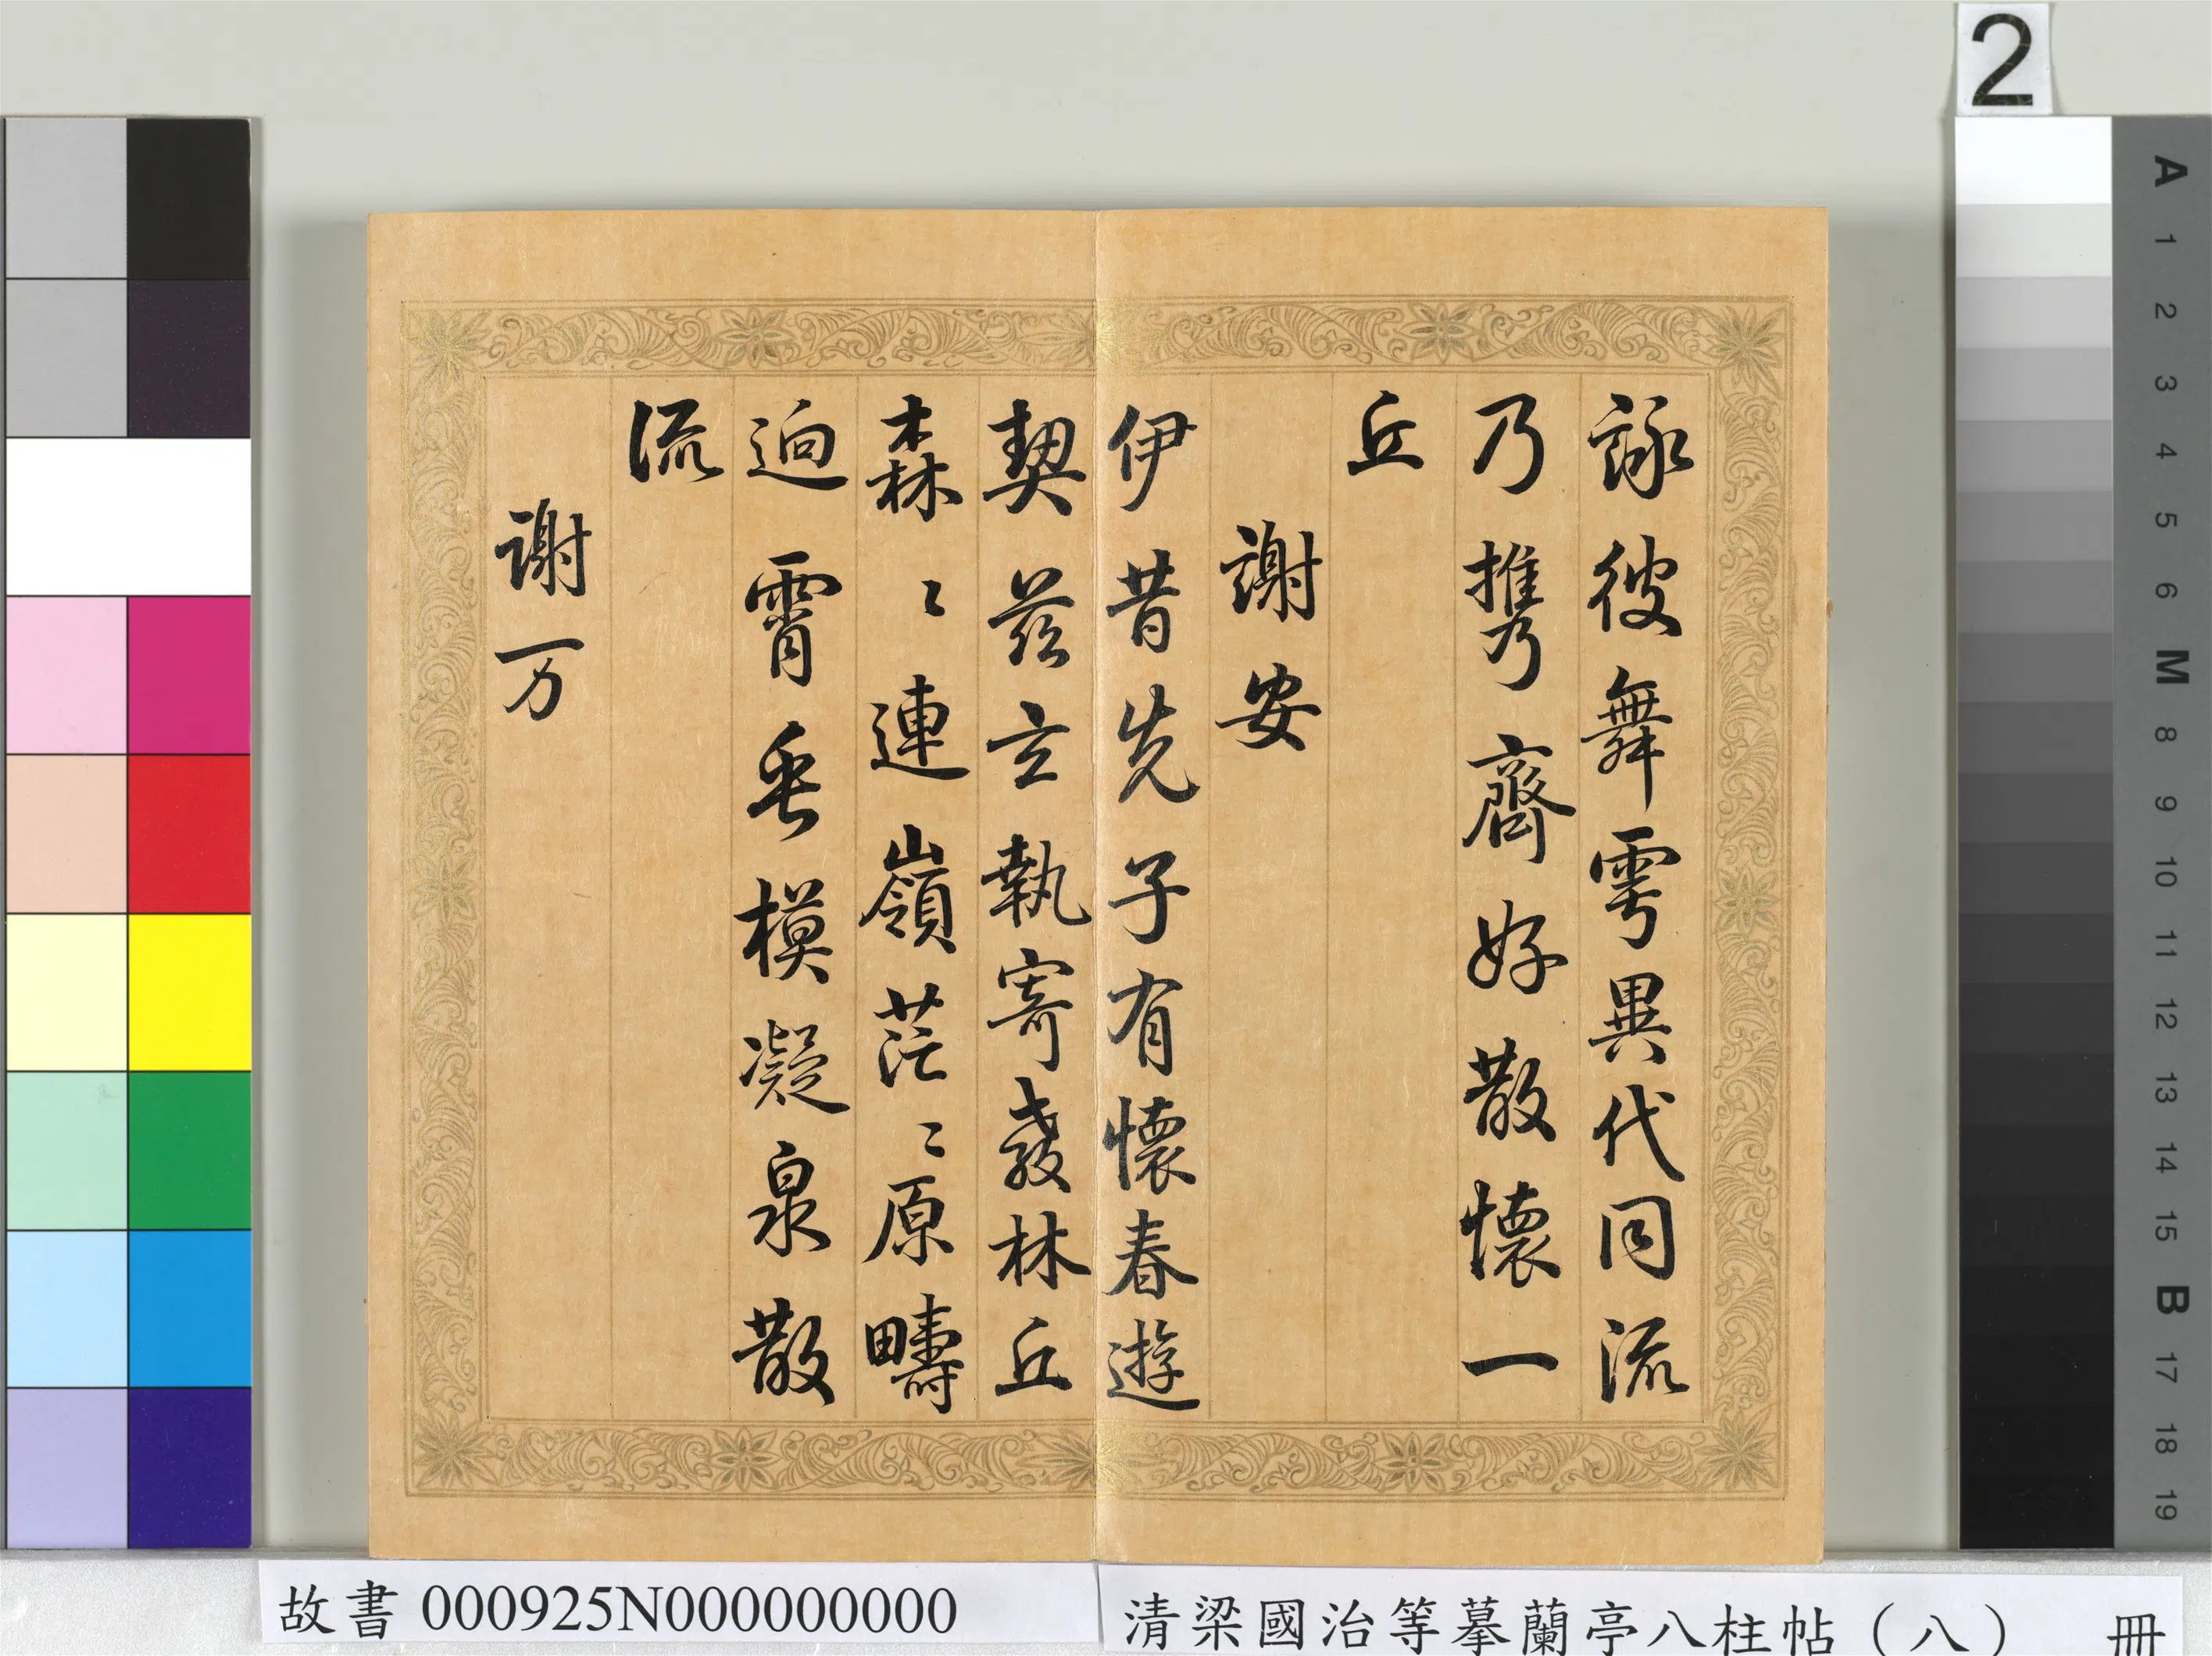 詠彼舞雩異代同流
乃攜齊好散懷一
丘
謝安
伊昔先子有懷春遊
契茲言執寄敖林丘
森〻連嶺茫〻原疇
迥霄垂模凝泉散
流
謝万
故書 000925N000000000
清梁國治等摹蘭亭八柱帖（八） 冊
2
A
1
2
3
4
5
6
M
8
9
10
11
12
13
14
15
B
17
18
19